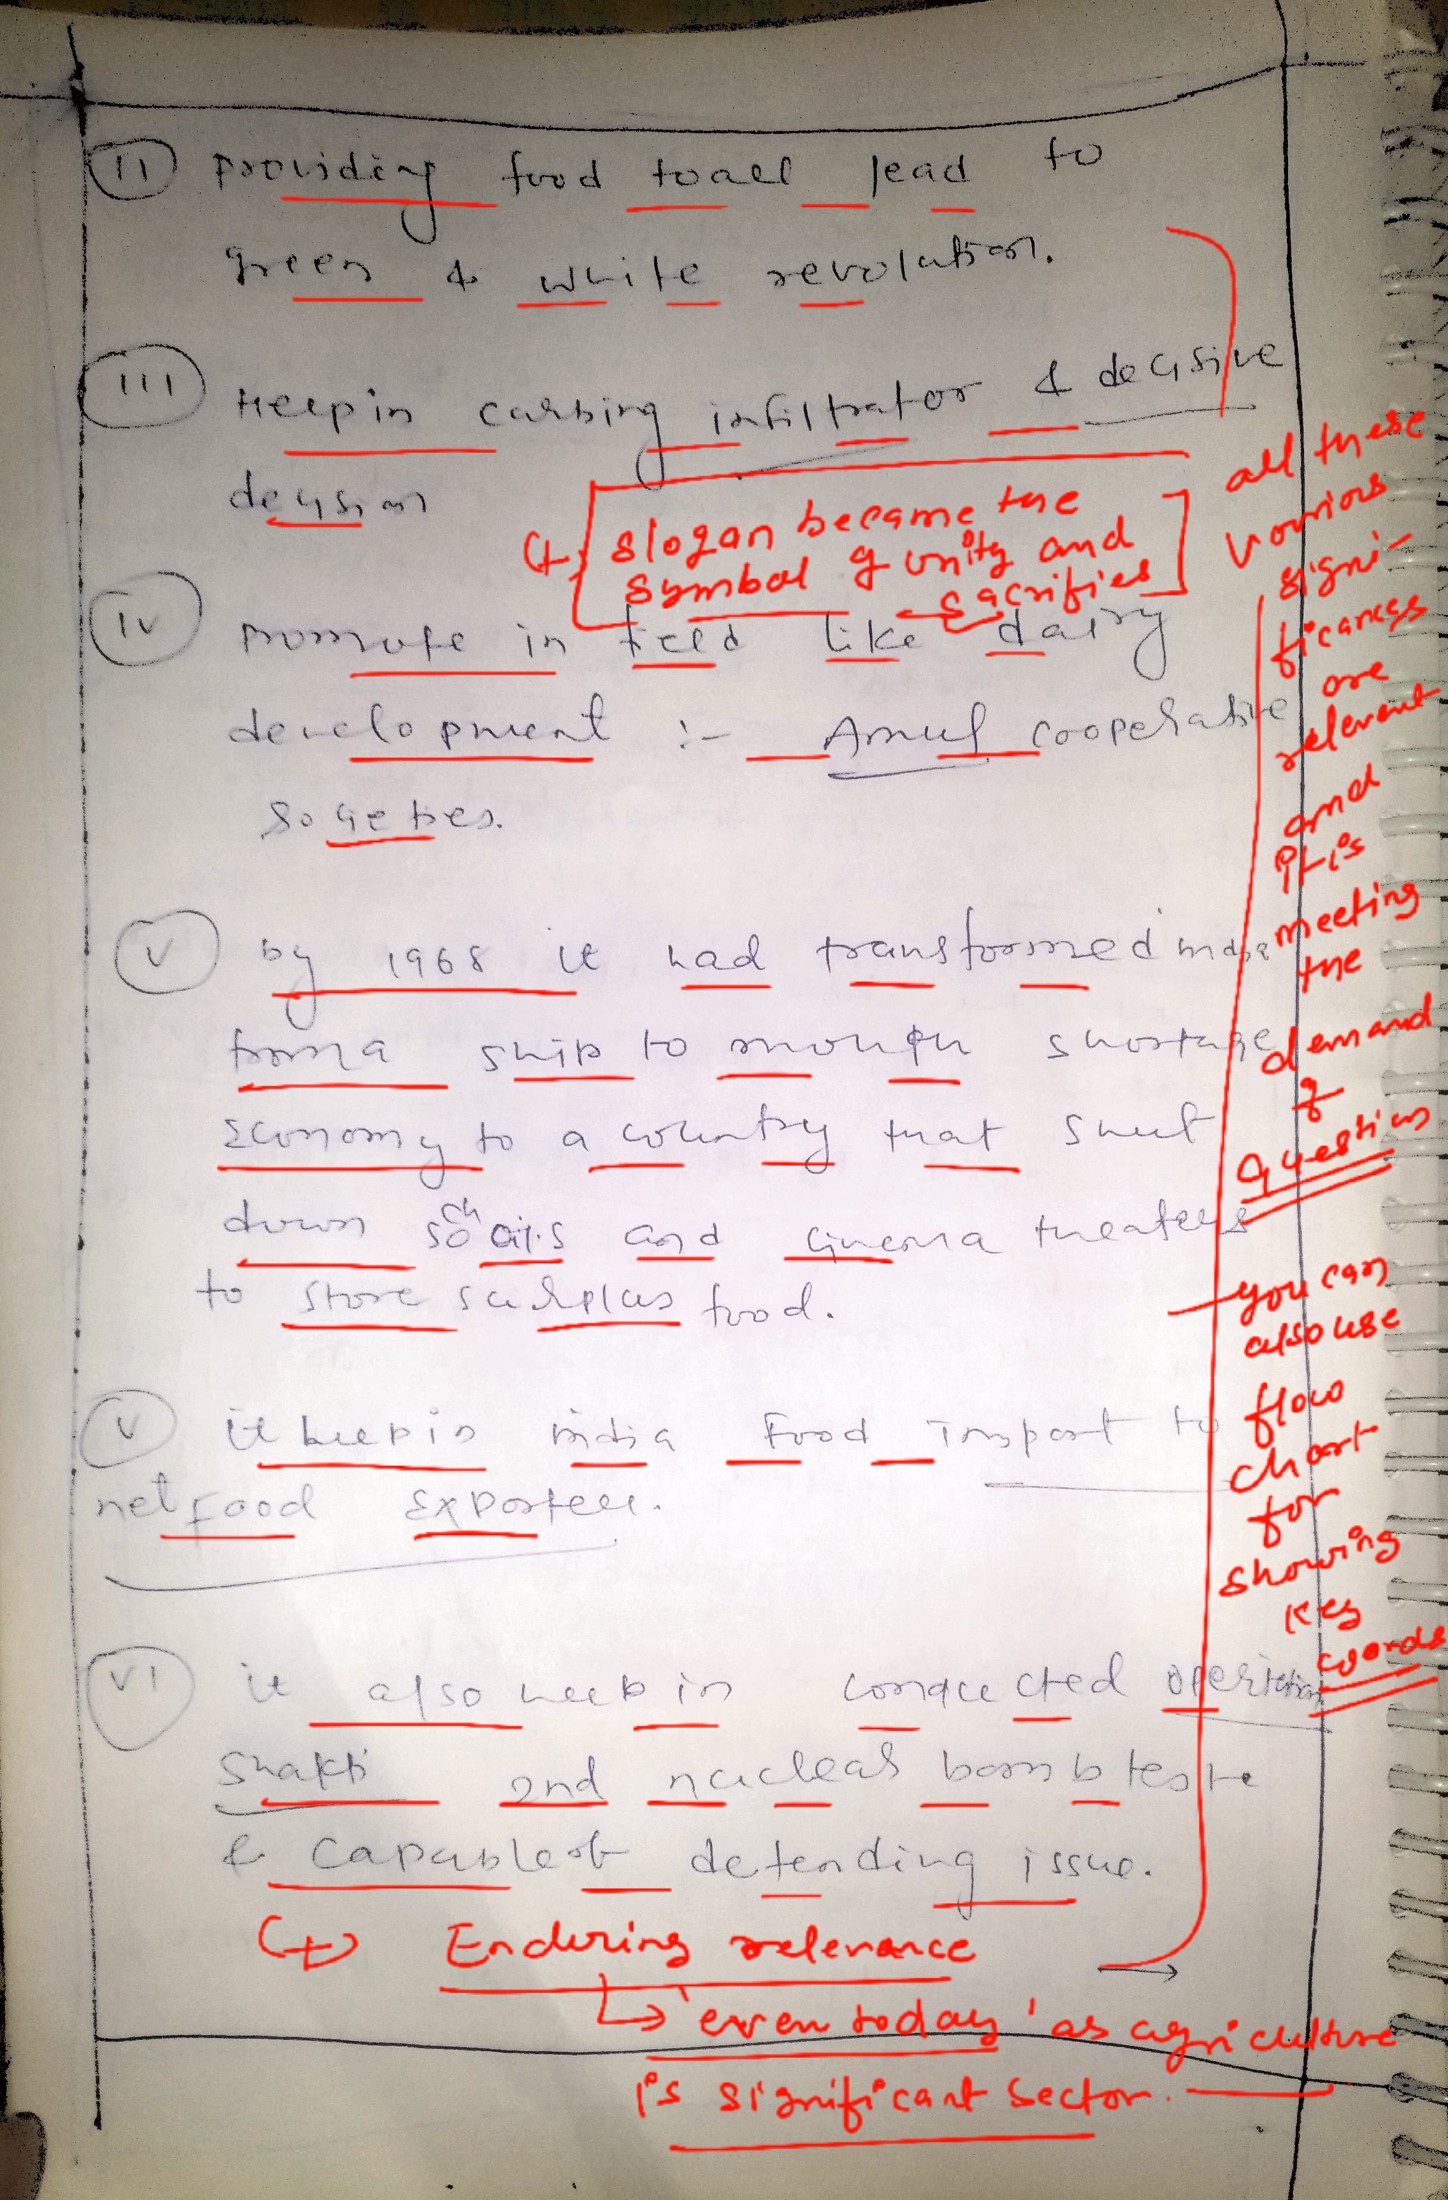 II providing food to all lead to
green & white revolution.
III Help in curbing infiltrator & decisive
decision
(+) slogan became the
symbol of unity and
sacrifies
IV promote in field like dairy
development :- Amul cooperative
societies.
V by 1968 it had transformed india
from a ship to mouth shortage
economy to a country that shut
down schools and cinema theaters
to store surplus food.
V it help in india food import to
net food exporter.
VI it also help in conducted operation
shakti 2nd nuclear bomb test
& capable of defending issue.
(+) Enduring relevance
↳ 'even today' as agriculture
is significant sector.
all these
various
signi-
ficances
are
relevant
and
it is
meeting
the
demand
of
question
you can
also use
flow
chart
for
showing
key
words